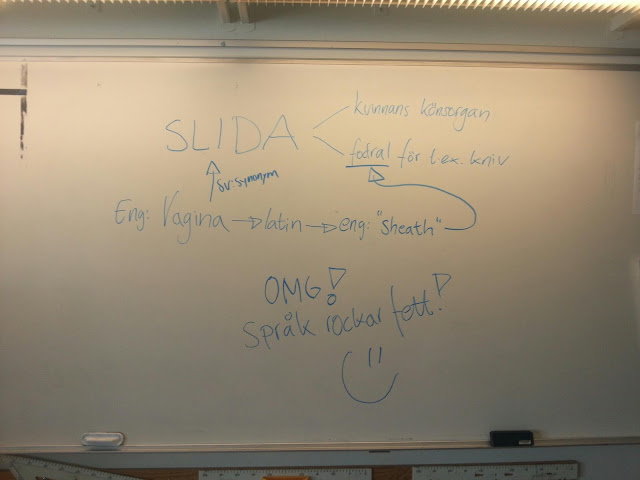 kvinnans könsorgan
SLIDA
fodral för t.ex. kniv
sv. synonym
Eng: Vagina → latin → eng: "sheath"
OMG!
Språk rockar fett!